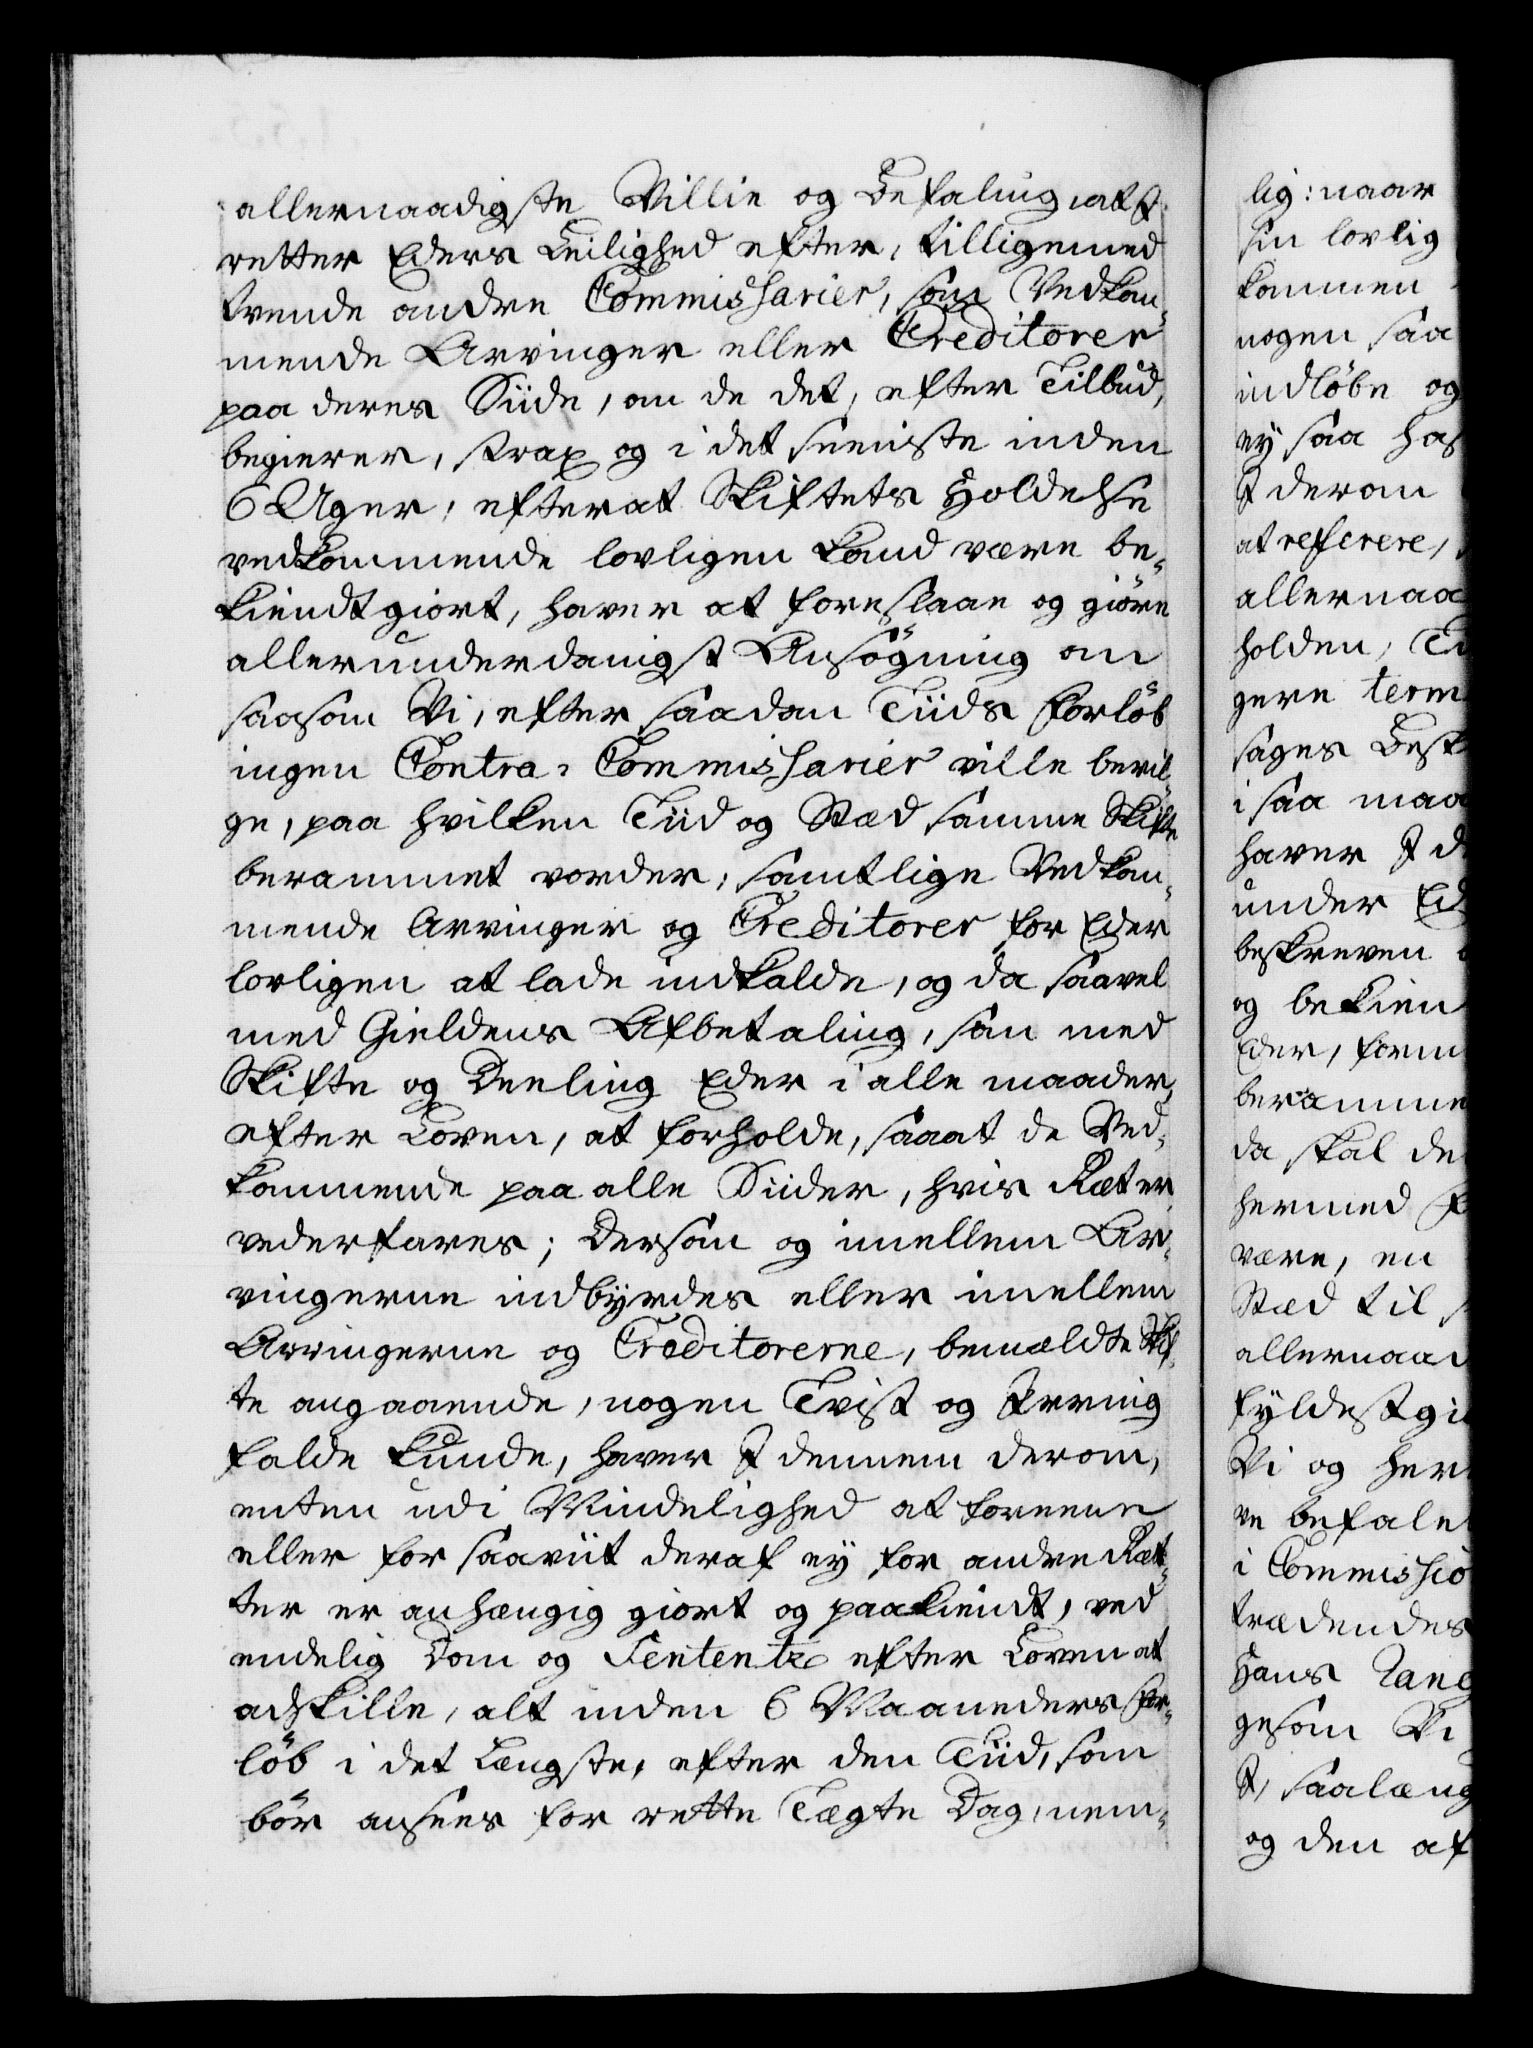 allernaadigste Villie og Befaling, at I
retter Eders Leilighed efter, tilligemed
tvende andre Commissarier, som Vedkom¬
mende Arvinger eller Creditorer
paa deres Siide, om de det, efter Tilbud,
begierer, strax og i det seeniste inden
6 Uger, efterat Skiftets Holdelse
vedkommende lovligen kand være be¬
kiendtgiort, haver at foreslaae og giöre
allerunderdanigst Ansögning om
saasom Vi, efter saadan Tiids Forlöb
ingen Contra-Commissarier ville bevil¬
ge, paa hvilken Tiid og Stæd samme Skifte
berammet vorder, samtlige Vedkom¬
mende Arvinger og Creditorer for Eder
lovligen at lade indkalde, og da saavel
med Gieldens Afbetaling, som med
Skifte og Deeling Eder i alle maader,
efter Loven, at forholde, saaat de Ved¬
kommende paa alle Siider, hvis Ræt er,
vederfares; Dersom og imellem Ar¬
vingerne indbÿrdes eller imellem
Arvingerne og Creditorerne, bemældte Skif¬
te angaaende, nogen Tvist og Irring
falde kunde, haver I dennem derom,
enten udi Mindelighed at foreene
eller for saaviit deraf eÿ for andre Ræt¬
ter er anhængig giort og paakiendt, ved
endelig Dom og Sententz efter Loven at
adskille, alt inden 6 Maaneders For¬
löb i det Længste, efter den Tiid, som
bör ansees for rette Tægte Dag, nem¬
lig: naar
sin lovlig
kommen
nogen saa
indløbe og
eÿ saa has
I derom
at referere,
allernaa
holden, Ti
gere term
sages Besk
i saa maa
haver I d
under Ed
beskreven
og bekien
Eder, form
beramme
da skal de
hermed f
være, en
Stæd til
allernaad
fÿldestgi
Vi og her
ve befale
i Commissio
trædendes
Hans Tang
gesom Vi
I, saalæng
og den af